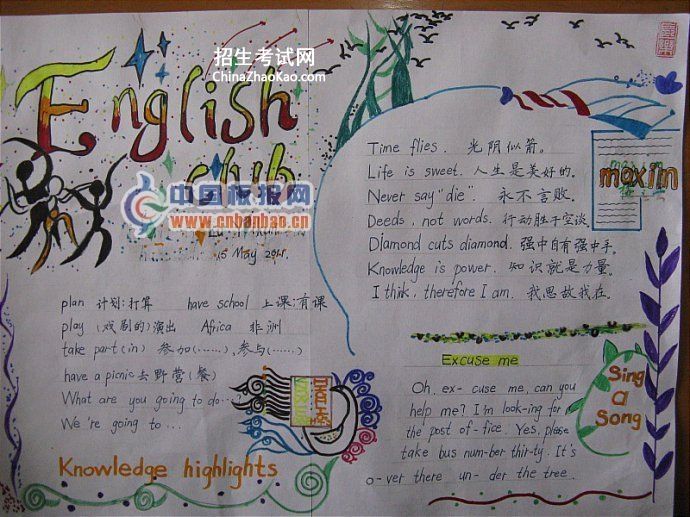 招生考试网
ChinaZhaoKao.com
English
club
中国板报网
www.cnbanbao.cn
15 May
plan 计划;打算 have school 上课;有课
play (戏剧的)演出 Africa 非洲
take part (in) 参加(……),参与(……)
have a picnic 去野营(餐)
What are you going to do...
We're going to ...
Knowledge highlights
maxim
Time flies. 光阴似箭。
Life is sweet. 人生是美好的.
Never say "die". 永不言败.
Deeds, not words. 行动胜于空谈.
Diamond cuts diamond. 强中自有强中手.
Knowledge is power. 知识就是力量.
I thik, therefore I am. 我思故我在.
Excuse me
Oh, ex- cuse me, can you
help me? I'm look-ing for a
the post of-fice. Yes, please
take bus num-ber thir-ty. It's
o-ver there un-der the tree.
Sing
a
Song